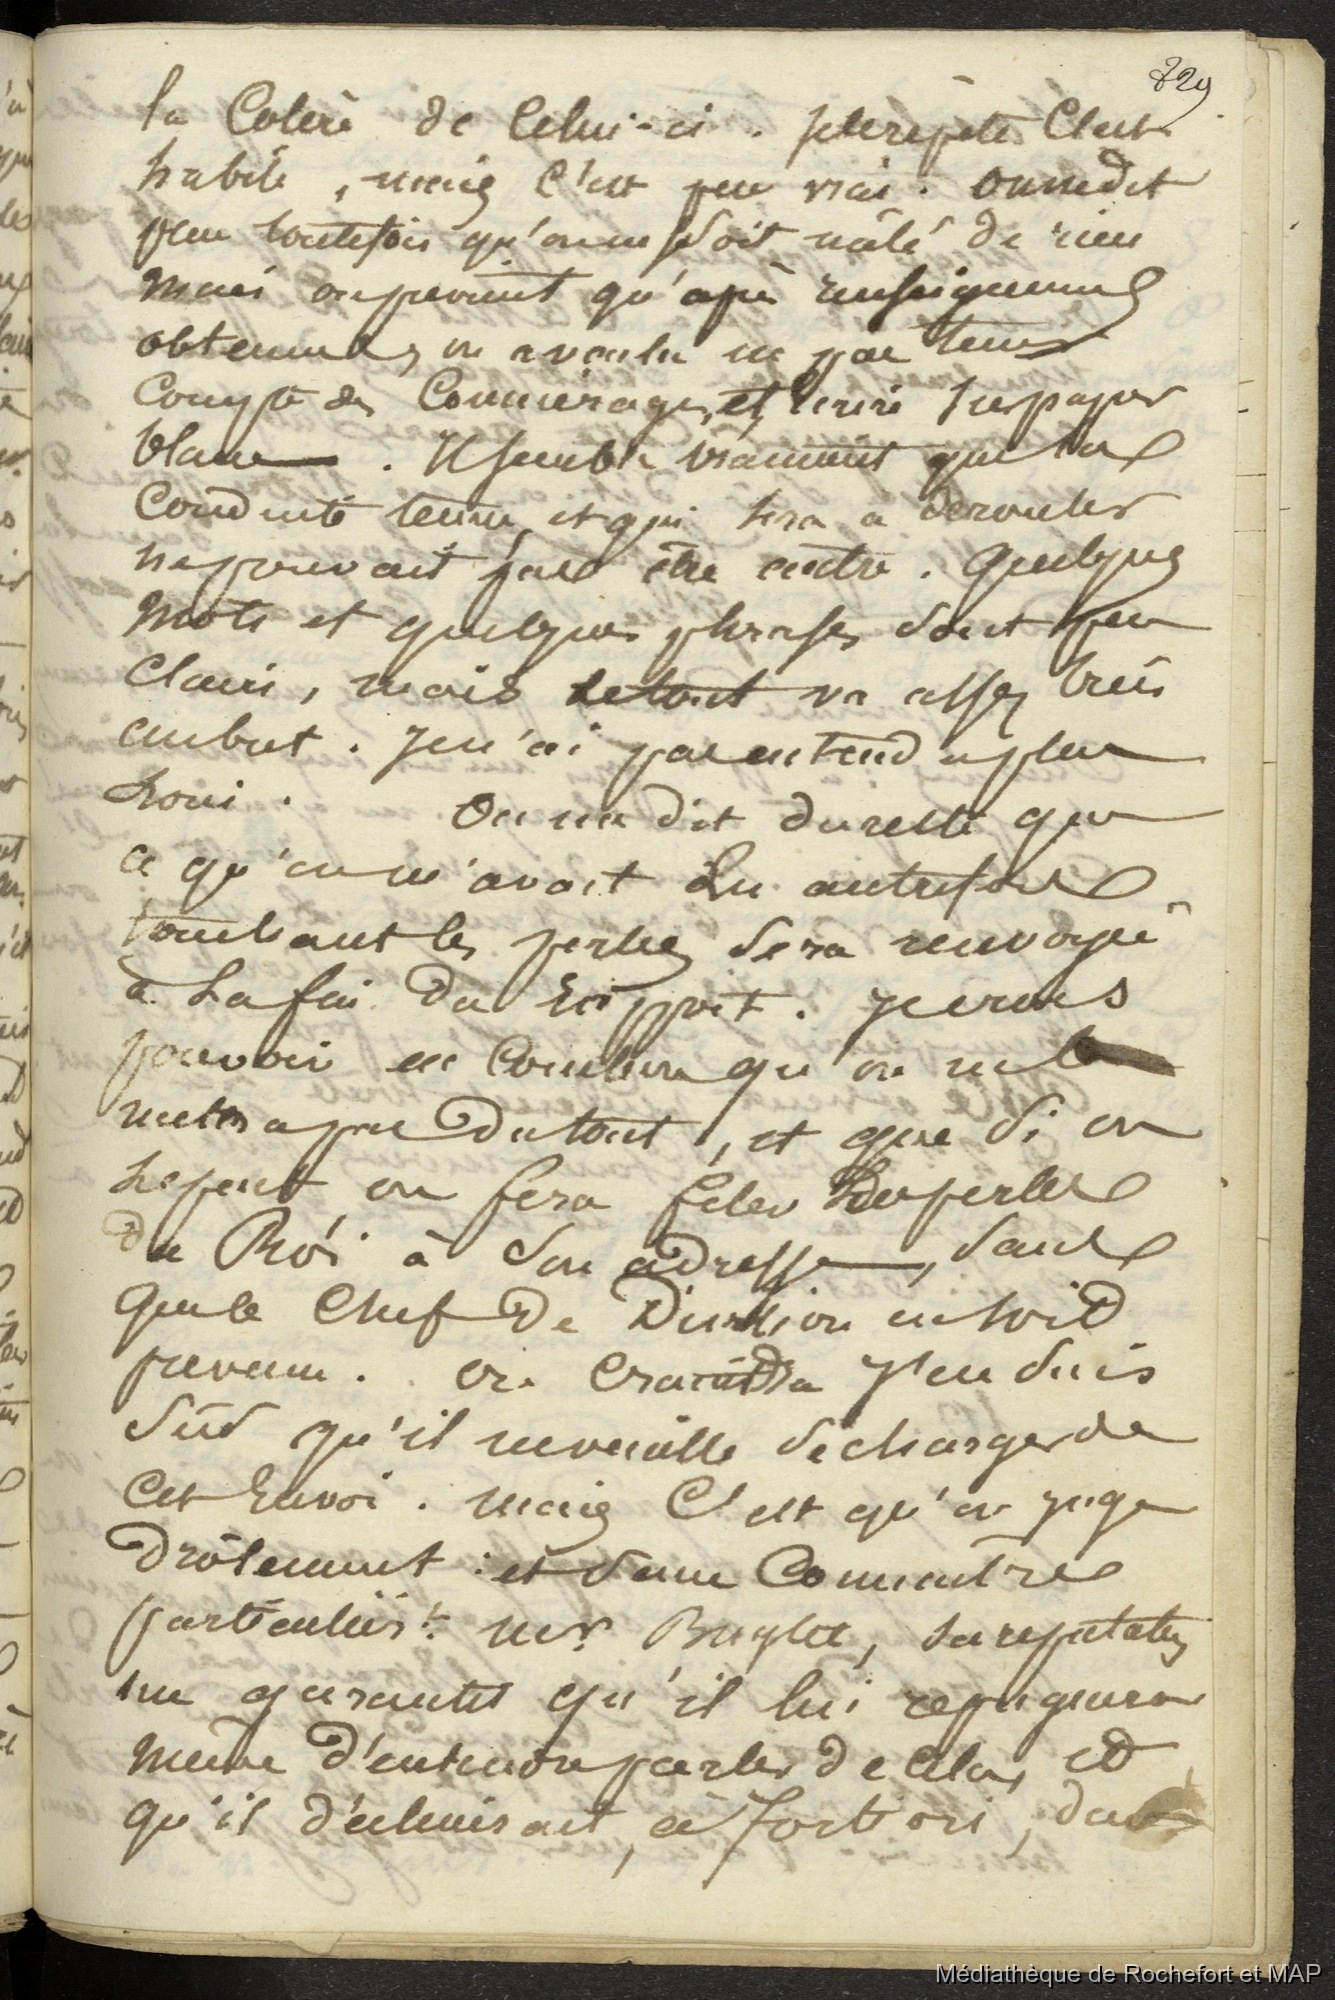 229
la Colère de Celui-ci. Je le répète C'est
habile, mais C'est peu vrai. on ne dit
pas toutefois qu'on ne soit mêlé de rien
mais on prévient qu'après renseignemens
obtenus, on a voulu ne pas tenir
Compte des Commérages, et, écrire sur papier
blanc. Il semble vraiment que la
Conduite tenue, et qui sera a dérouler
ne pouvait pas être autre. quelques
mots et quelques phrases sont peu
Clairs, mais le tout va assez bien
au but. Je n'ai pas entendu plus
loin. On me dit du reste que
ce qu'on m'avait lu autrefois
touchant les perles sera renvoyé
à la fin du Rapport. je crois
pouvoir en Conclure qu'on ne le
mettra pas du tout, et que si on
le peut, on fera filer les perles
du Roi à son adresse, sans
que le Chef de Division en soit
prévenu. on Craindra j'en suis
sûr qu'il ne veuille se charger de
Cet Envoi. mais C'est qu'on juge
drôlement : et sans Connaître
particulièr.t Mr. Buglet, sa reputation
me garantit qu'il lui répugnera
même d'entendre parler de Cela, et
qu'il s'abaisserait, à fortiori, dans